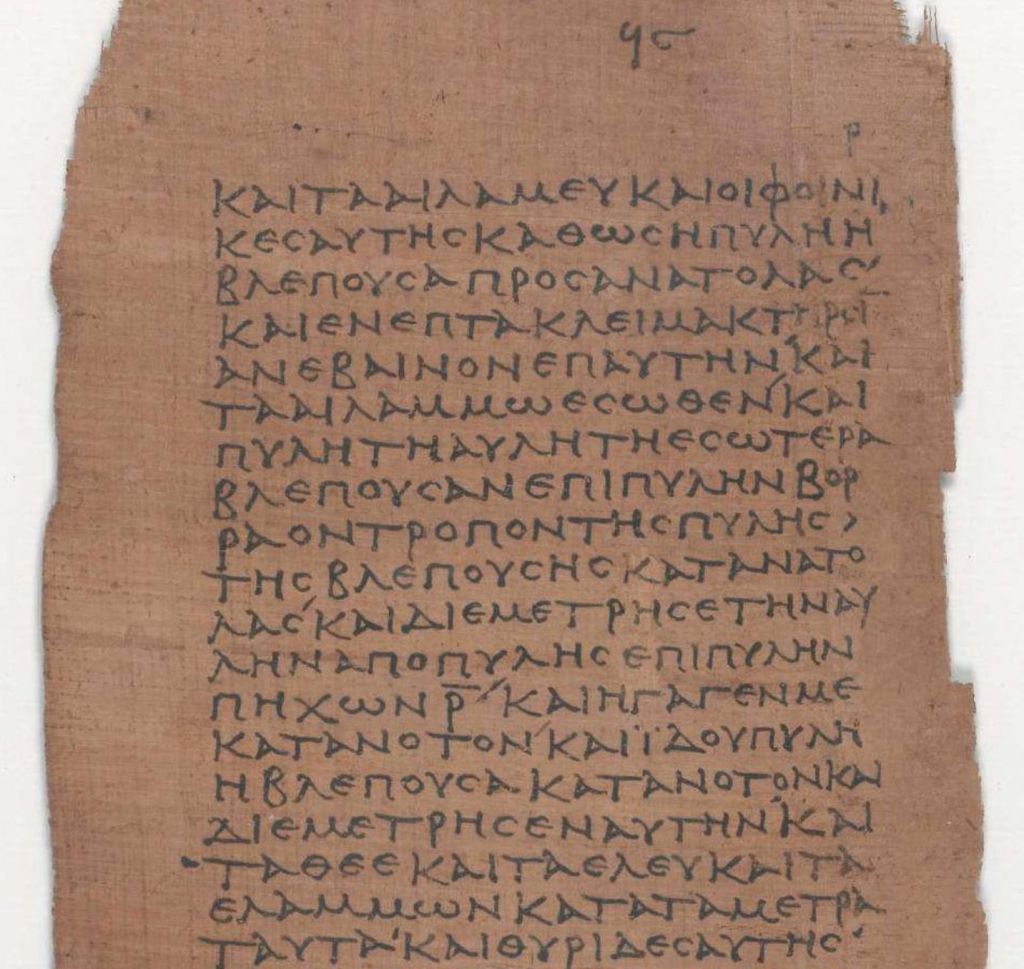 ϥϛ
ρ
ΚΑΙΤΑΑΙΛΑΜΕΥΚΑΙΟΙΦΟΙΝΙ
ΚΕϹΑΥΤΗϹΚΑΘΩϹΗΠΥΛΗΗ
ΒΛΕΠΟΥϹΑΠΡΟϹΑΝΑΤΟΛΑϹ
ΚΑΙΕΝΕΠΤΑΚΛΕΙΜΑΚΤΡϹΙ
ΑΝΕΒΑΙΝΟΝΕΠΑΥΤΗΝ ΚΑΙ
ΤΑΑΙΛΑΜΜΩΕϹΩΘΕΝ ΚΑΙ
ΠΥΛΗΤΗΑΥΛΗΤΗΕϹΩΤΕΡΑ
ΒΛΕΠΟΥϹΑΝΕΠΙΠΥΛΗΝΒΟΡ
ΡΑΟΝΤΡΟΠΟΝΤΗϹΠΥΛΗϹ›
ΤΗϹΒΛΕΠΟΥϹΗϹΚΑΤΑΝΑΤΟ
ΛΑϹ ΚΑΙΔΙΕΜΕΤΡΗϹΕΤΗΝΑΥ
ΛΗΝΑΠΟΠΥΛΗϹΕΠΙΠΥΛΗΝ
ΠΗΧΩΝΡ̅ ΚΑΙΗΓΑΓΕΝΜΕ
ΚΑΤΑΝΟΤΟΝ ΚΑΙΪΔΟΥΠΥΛΗ
ΗΒΛΕΠΟΥϹΑΚΑΤΑΝΟΤΟΝΚΑΙ
ΔΙΕΜΕΤΡΗϹΕΝΑΥΤΗΝ ΚΑΙ
ΤΑΘΕΕΚΑΙΤΑΕΛΕΥΚΑΙΤΑ
ΕΛΑΜΜΩΝΚΑΤΑΤΑΜΕΤΡΑ
ΤΑΥΤΑ ΚΑΙΘΥΡΙΔΕϹΑΥΤΗϹ